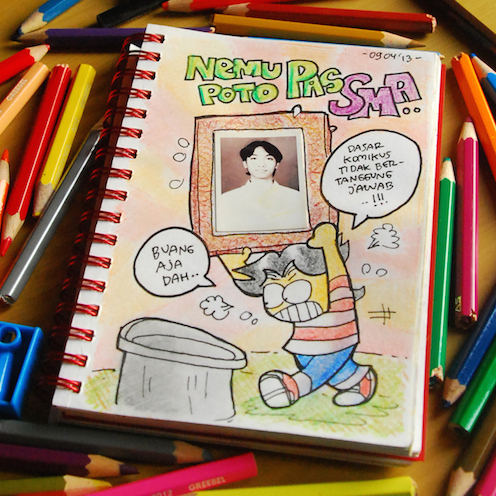 -0904'13-
NEMU PAS
POTO SMA..
DASAR
KOMIKUS
TIDAK BER-
TANGGUNG
JAWAB
..!!!
BUANG
AJA
DAH..
GREEBEL